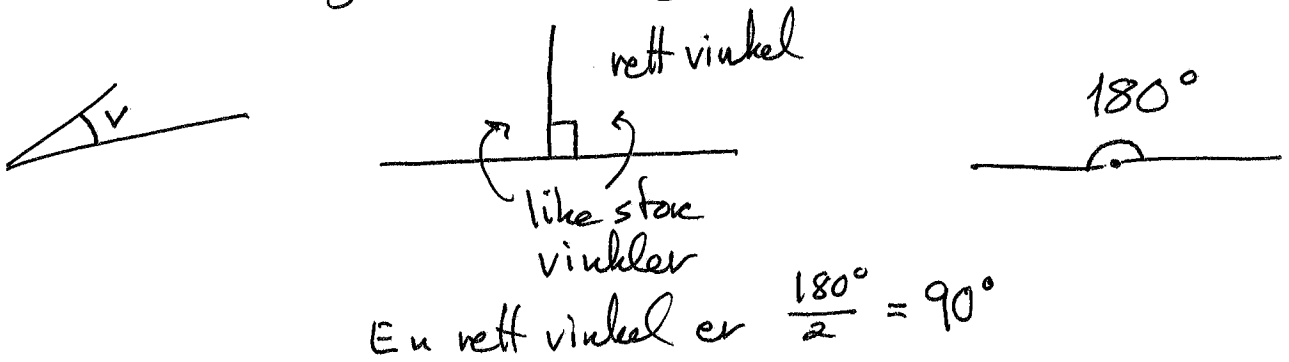 v
rett vinkel
like store
vinkler
180°
En rett vinkel er 180°/2 = 90°